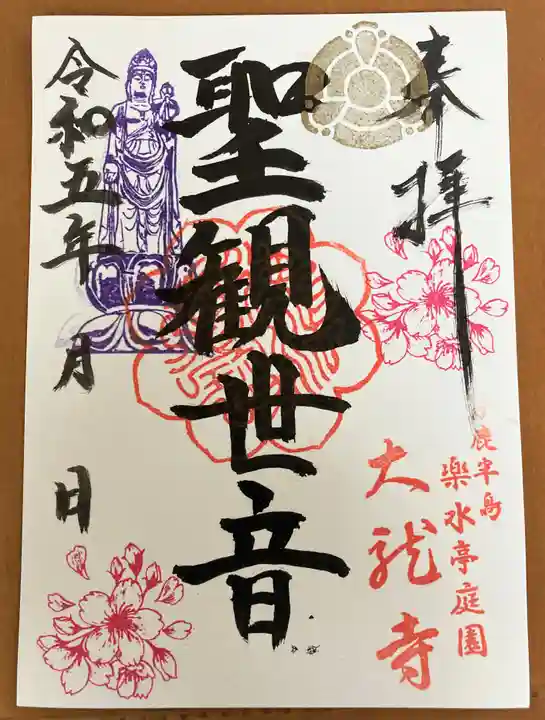 奉拝
鹿半島
楽水亭庭園
大龍寺
聖観世音
令和五年 月 日